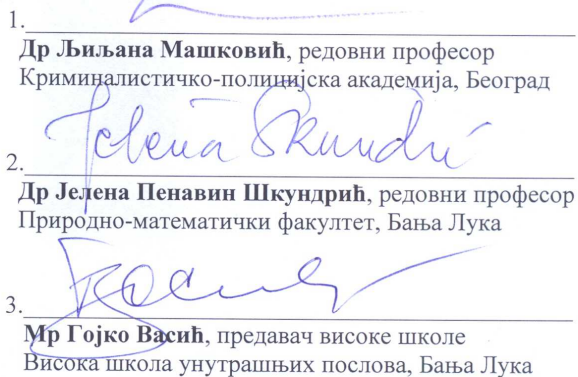 1.
Др Љиљана Машковић, редовни професор
Криминалистичко-полицијска академија, Београд
Jelena Škundrić
2.
Др Јелена Пенавин Шкундрић, редовни професор
Природно-математички факултет, Бања Лука
3.
Мр Гојко Васић, предавач високе школе
Висока школа унутрашњих послова, Бања Лука